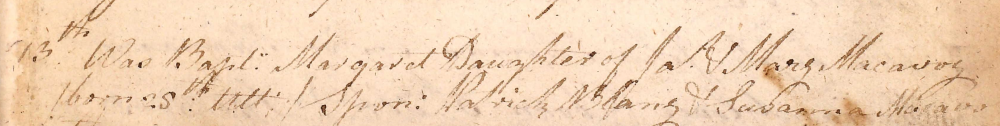 13th Was Bapt: Margaret Daughter of Ja: & Mary Macavoy
(born 28th Ult:) Spon: Patrick & Susanna Macavo